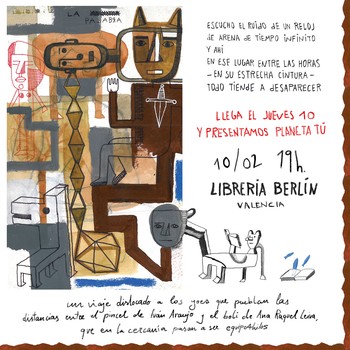 LA
PALABRA
ESCUCHO EL RUIDO DE UN RELOJ
DE ARENA DE TIEMPO INFINITO
Y AHÍ
EN ESE LUGAR ENTRE LAS HORAS
- EN SU ESTRECHA CINTURA -
TODO TIENDE A DESAPARECER
LLEGA EL JUEVES 10
Y PRESENTAMOS PLANETA TÚ
10/02 19h.
LIBRERÍA BERLÍN
VALENCIA
un viaje dislocado a los yoes que pueblan las
distancias entre el pincel de Iván Araujo y el boli de Ana Raquel Leiva,
que en la cercanía pasan a ser